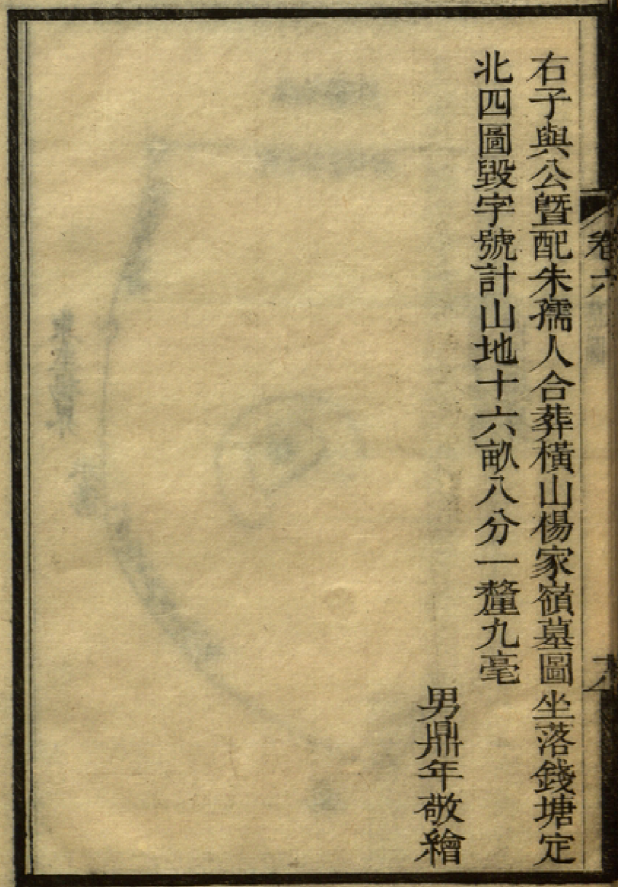 卷六
右子與公曁配朱孺人合葬橫山楊家嶺墓圖坐落錢塘定
北四圖毀字號計山地十六畝八分一釐九毫
男鼎年敬繪